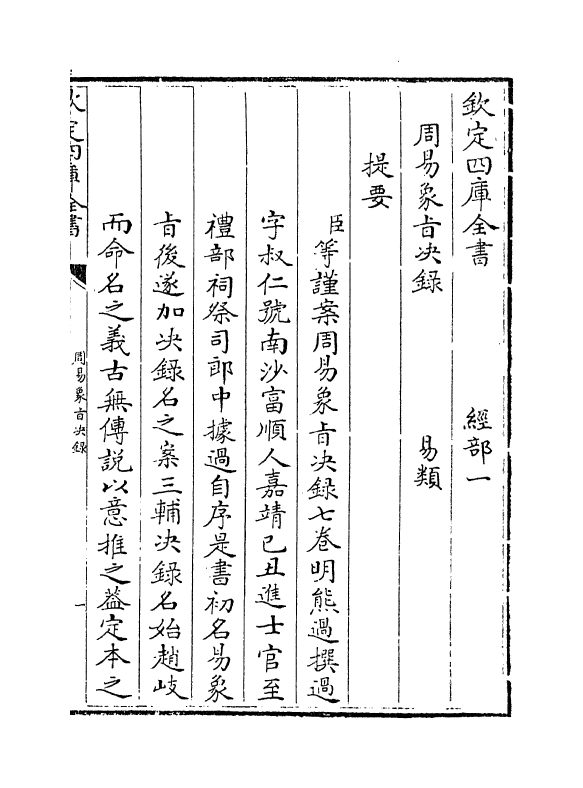 欽定四庫全書　經部一
周易象旨决録　易類
提要
臣等謹案周易象旨决録七卷明熊過撰過
字叔仁號南沙富順人嘉靖己丑進士官至
禮部祠祭司郎中據過自序是書初名易象
旨後遂加决録名之案三輔决録名始趙岐
而命名之義古無傳説以意推之葢定本之
欽定四庫全書
周易象旨决録
一